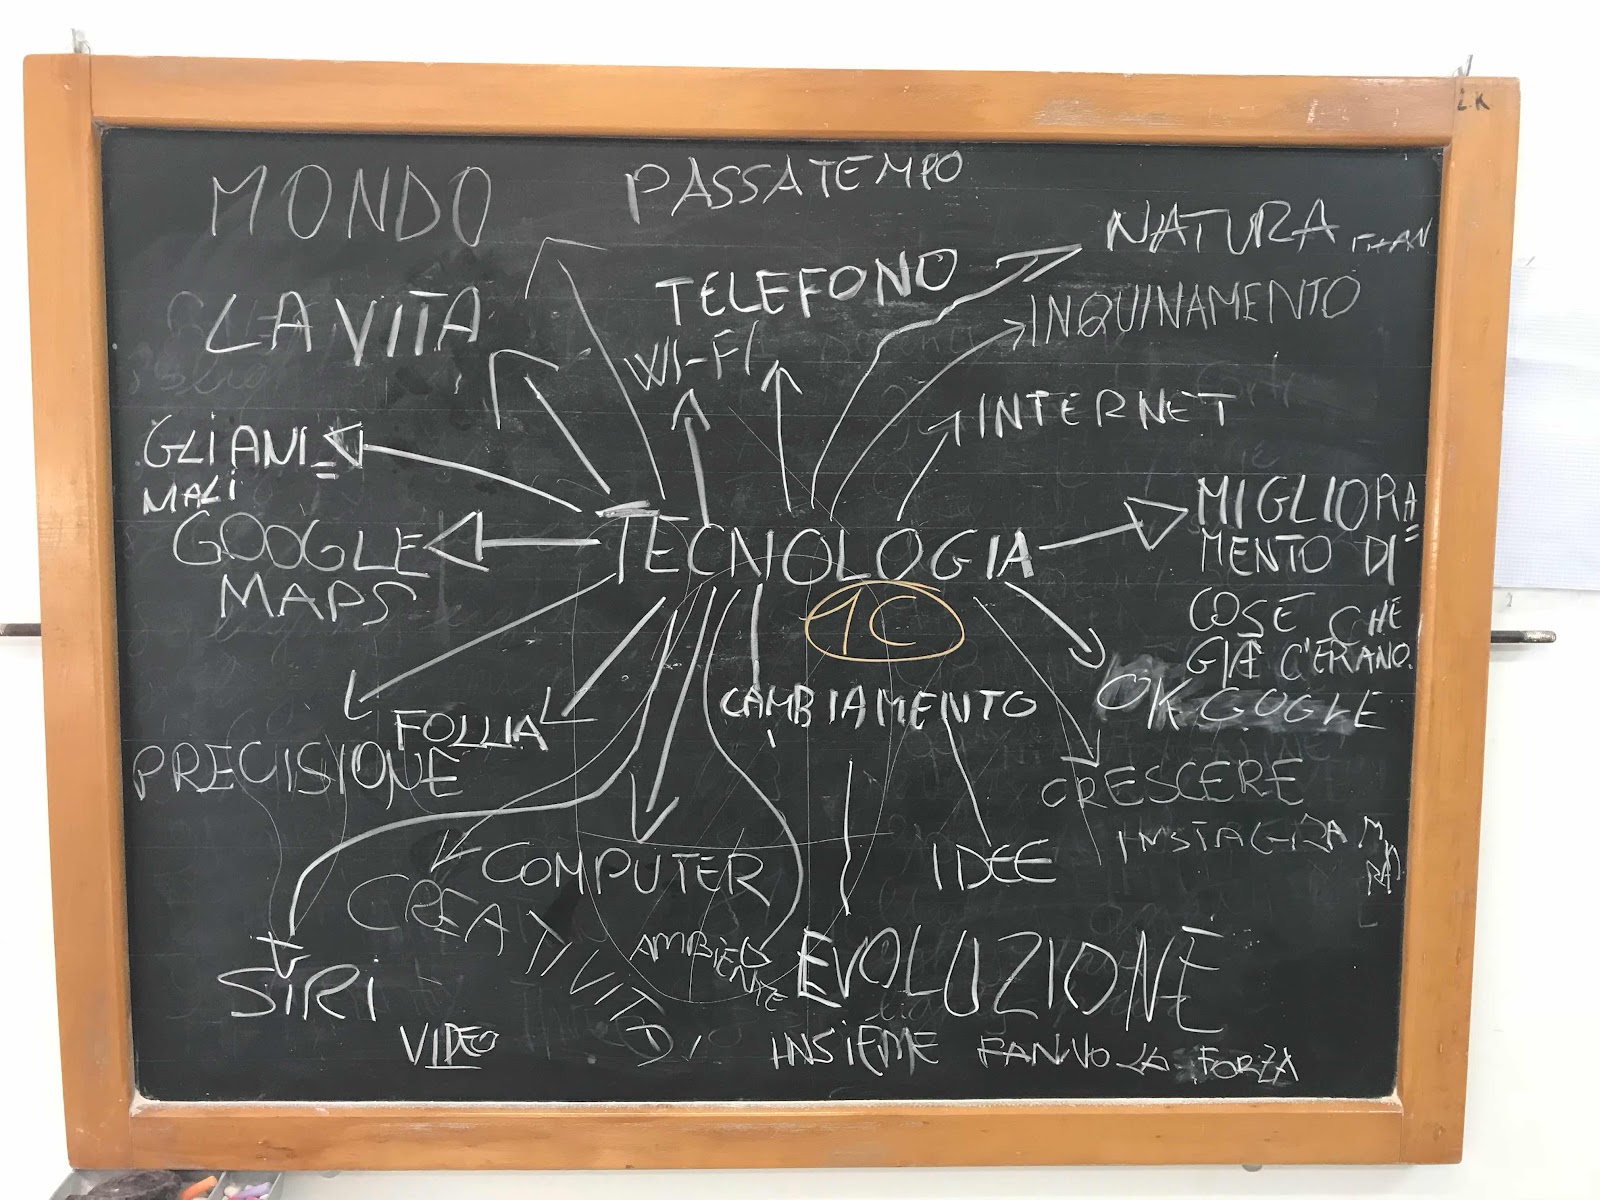 L.K
MONDO
PASSATEMPO
NATURA
LA VITA
TELEFONO
INQUINAMENTO
WI-FI
INTERNET
GLI ANI=
MALI
GOOGLE
MAPS
TECNOLOGIA
1C
MIGLIORA=
MENTO DI
COSE CHE
GIÀ C'ERANO.
OK GOOGLE
CAMBIAMENTO
FOLLIA
PRECISIONE
CRESCERE
INSTAGRAM
COMPUTER
IDEE
CREATIVITÀ
AMBIENTE
EVOLUZIONE
SIRI
VIDEO
INSIEME FANNO LA FORZA